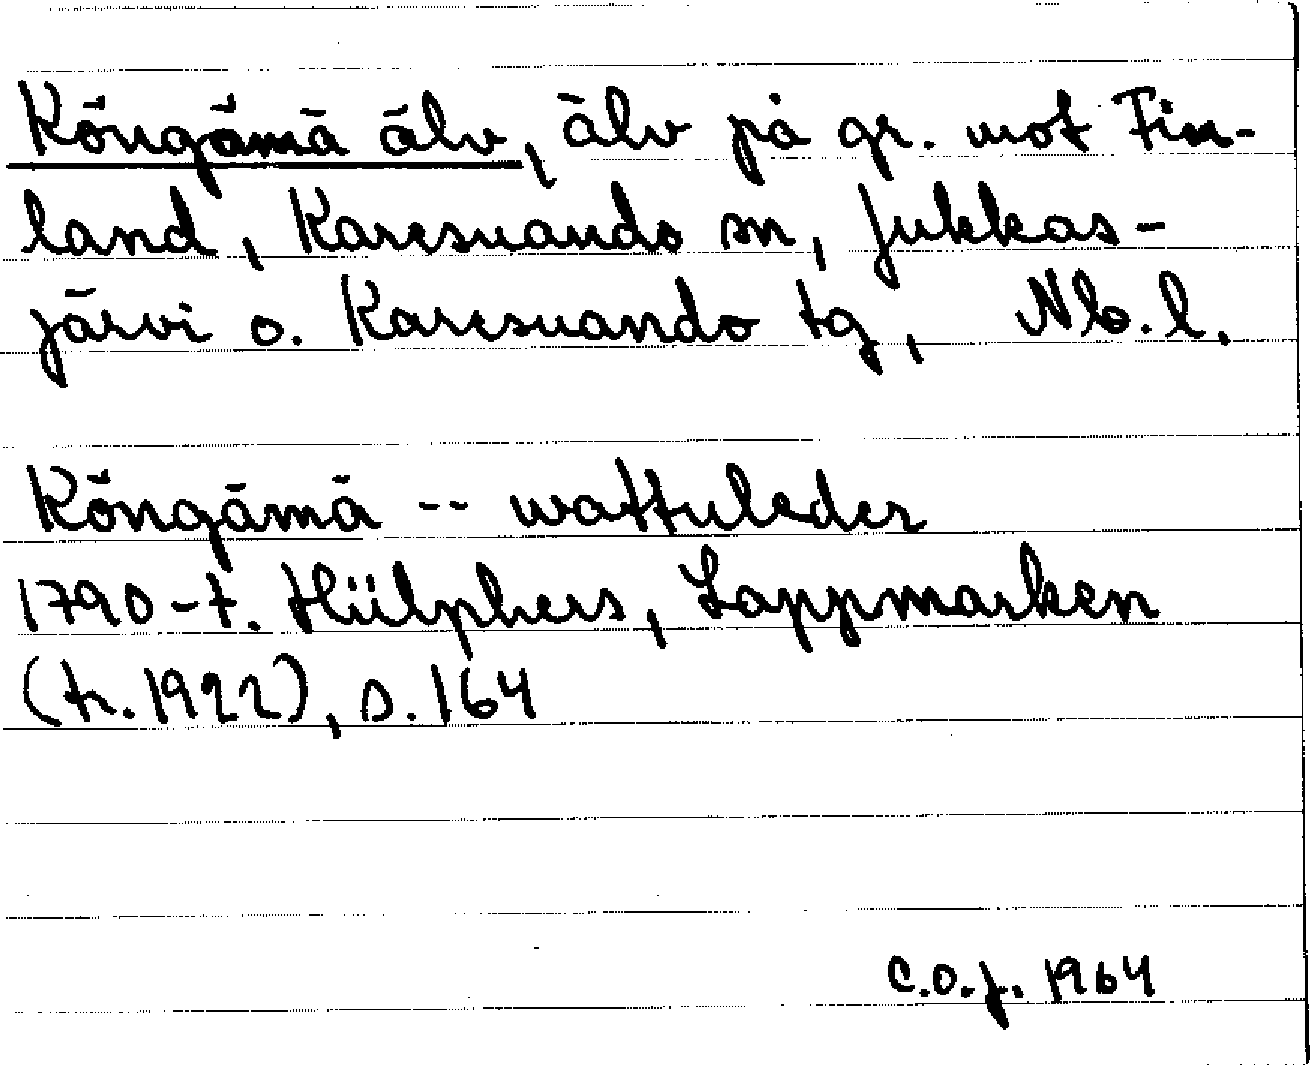 Köngämä älv, älv på gr. mot Fin-
land, Karesuando sn, Jukkas-
järvi o. Karesuando tg, Nb.l.
Köngämä -- wattuleder
1790-t. Hülphers, Lappmarken
(tr. 1922), s. 164
C.O.J. 1964